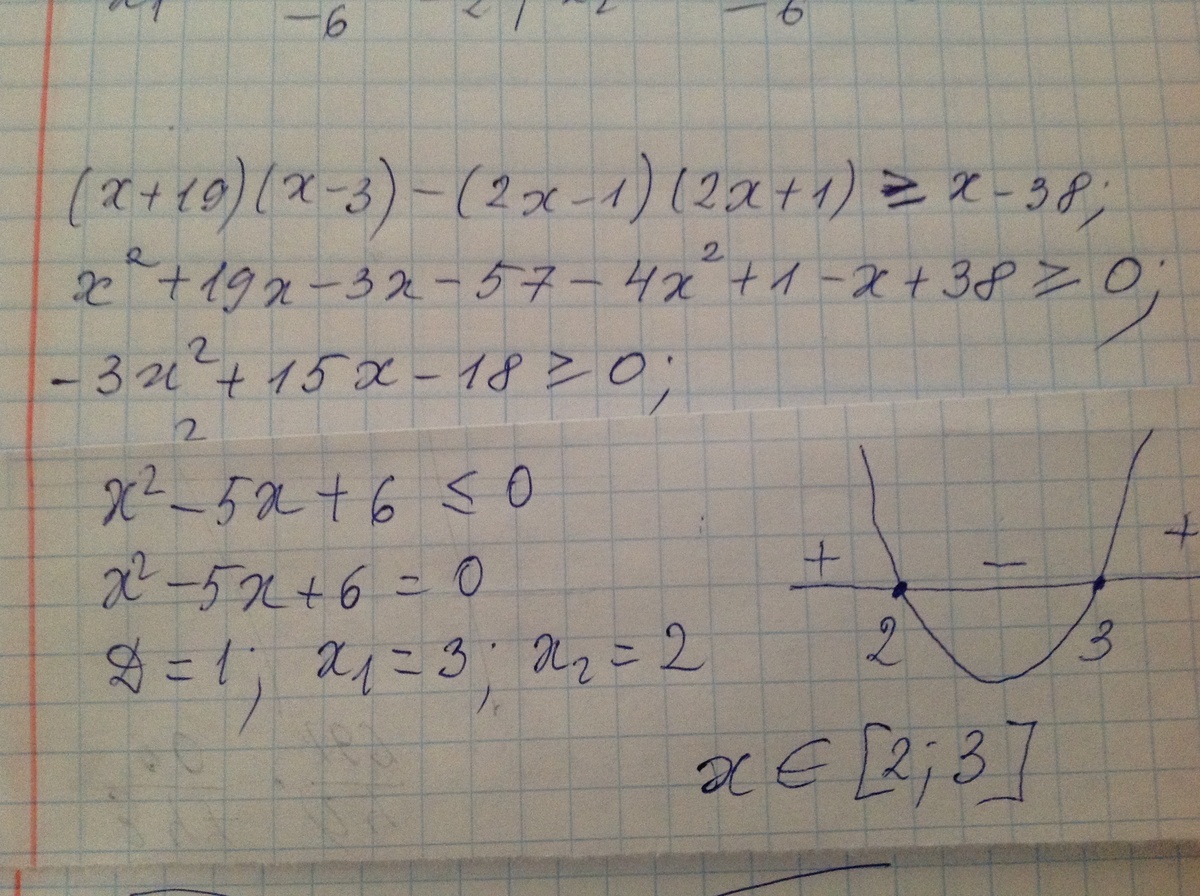 -6 -6
(x+19)(x-3)-(2x-1)(2x+1) ≥ x-38;
x²+19x-3x-57-4x²+1-x+38 ≥ 0;
-3x²+15x-18 ≥ 0;
2
x²-5x+6 ≤ 0
x²-5x+6 = 0
D=1; x₁=3; x₂=2
+ - +
2 3
x ∈ [2; 3]